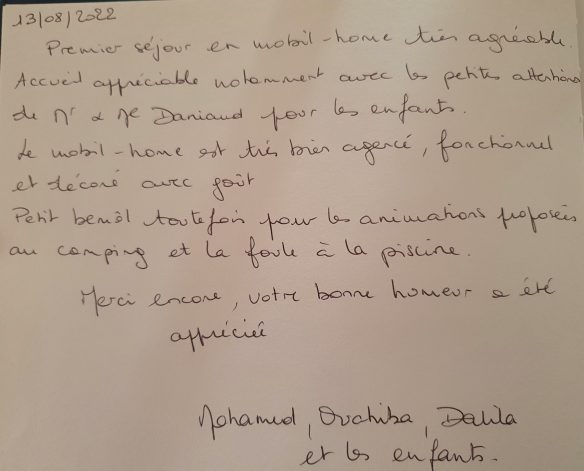 13/08/2022
Premier séjour en mobil-home très agréable.
Accueil appréciable notamment avec les petites attentions
de Mr & Me Daniaud pour les enfants.
Le mobil-home est très bien agencé, fonctionnel
et décoré avec goût
Petit bemôl toutefois pour les animations proposées
au camping et la foule à la piscine.
Merci encore, votre bonne humeur a été
appréciée
Mohamed, Ouahiba, Dalila
et les enfants.